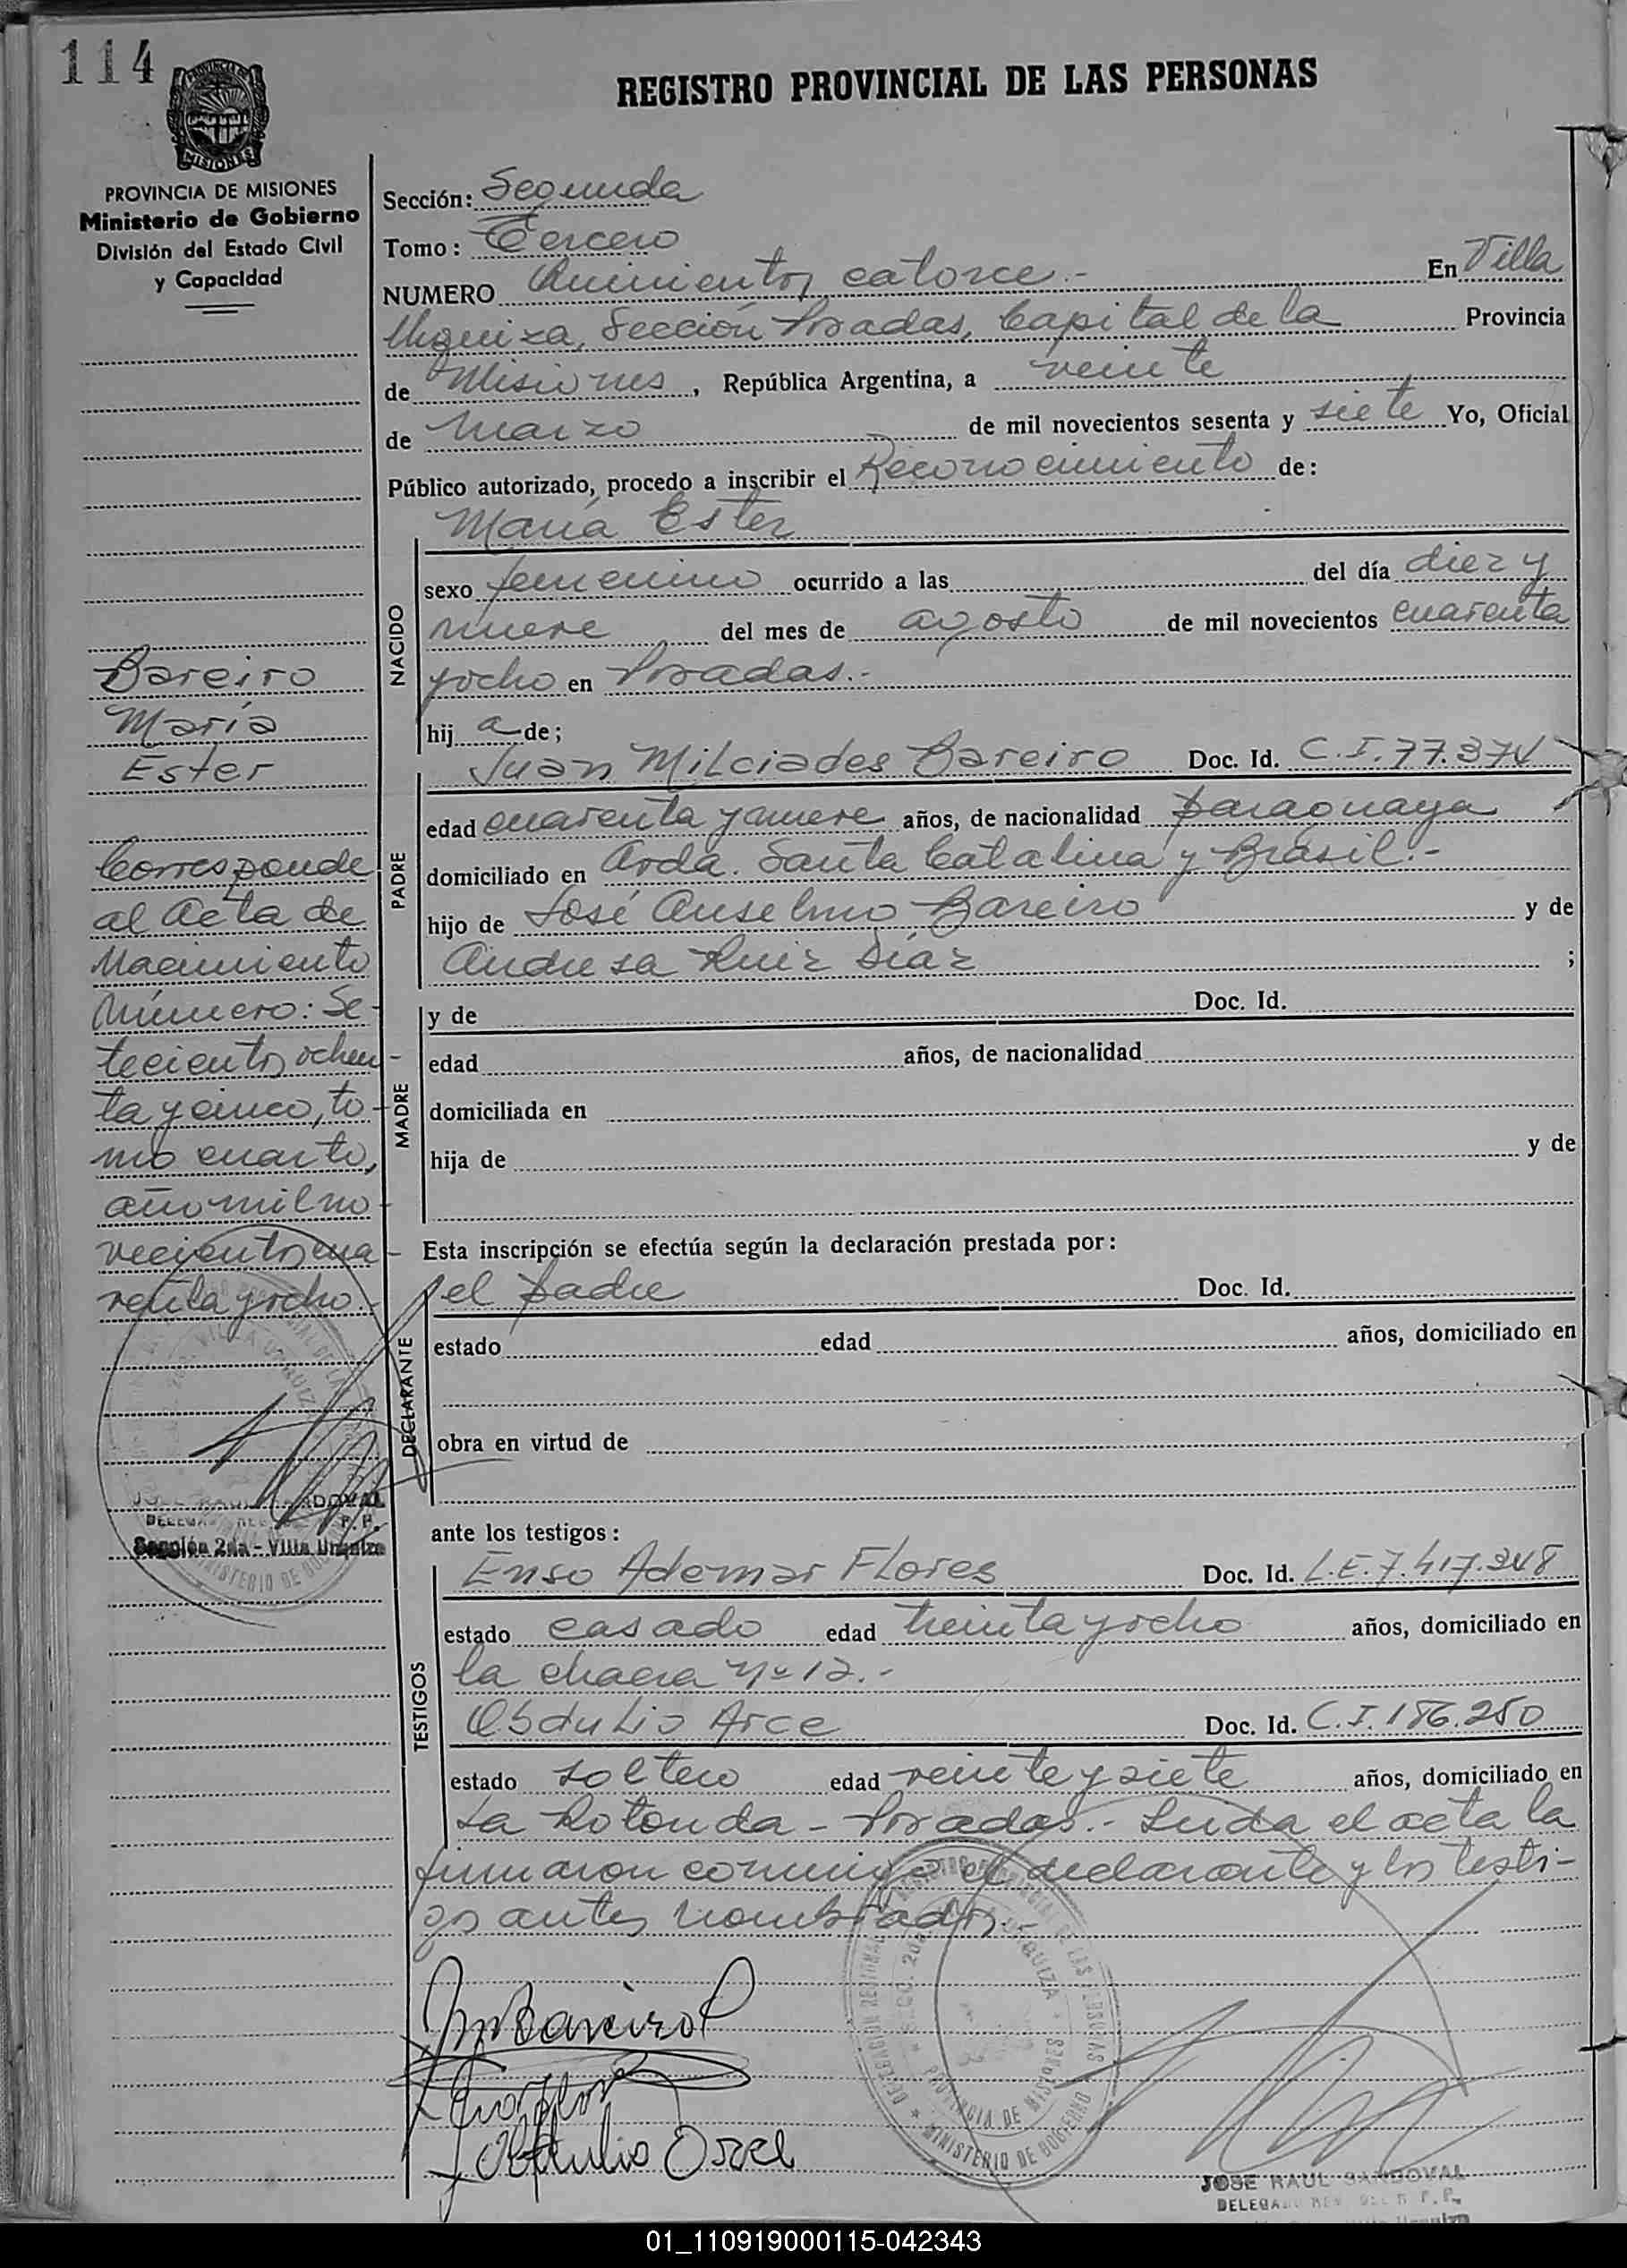 114
REGISTRO PROVINCIAL DE LAS PERSONAS
PROVINCIA DE MISIONES
MISIONES
PROVINCIA DE MISIONES
Ministerio de Gobierno
División del Estado Civil
y Capacidad
Bareiro
María
Ester
Corresponde
al Acta de
Nacimiento
Número: Se-
tecientos ochen-
ta y cinco, to-
mo cuarto,
año mil no-
vecientos cua-
renta y ocho.-
JOSE RAUL SANDOVAL
Sección 2da - Villa Urquiza
Sección: Segunda
Tomo: Tercero
NUMERO Quinientos catorce.- En Villa
Urquiza, Sección Posadas, Capital de la Provincia
de Misiones, República Argentina, a veinte
de Marzo de mil novecientos sesenta y siete Yo, Oficial
Público autorizado, procedo a inscribir el Reconocimiento de:
María Ester
NACIDO
sexo femenino ocurrido a las del día diez y
nueve del mes de agosto de mil novecientos cuarenta
y ocho en Posadas.-
hija de;
PADRE
Juan Milciades Bareiro Doc. Id. C.I. 77.374
edad cuarenta y nueve años, de nacionalidad paraguaya
domiciliado en Avda. Santa Catalina y Brasil.-
hijo de José Anselmo Bareiro y de
Andresa Ruiz Díaz ;
MADRE
y de Doc. Id.
edad años, de nacionalidad
domiciliada en
hija de y de
Esta inscripción se efectúa según la declaración prestada por:
DECLARANTE
el padre Doc. Id.
estado edad años, domiciliado en
obra en virtud de
ante los testigos:
TESTIGOS
Enso Ademar Flores Doc. Id. L.E. 7.417.348
estado casado edad treinta y ocho años, domiciliado en
la chacra Nº 12.-
Obdulio Arce Doc. Id. C.I. 186.250
estado soltero edad veinte y siete años, domiciliado en
La Rotonda - Posadas.- Leída el acta la
firmaron conmigo el declarante y los testi-
gos antes nombrados.-
JmBareiro
Obdulio Arce
PROVINCIA DE MISIONES
MINISTERIO DE GOBIERNO
JOSE RAUL SANDOVAL
01_110919000115-042343